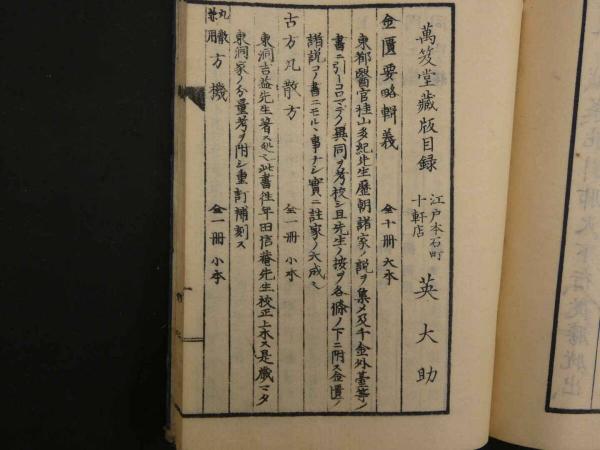 萬笈堂藏版目録 江戸本石町十軒店 英大助
金匱要略輯義 全十冊 大本
東都醫官桂山多紀先生歴朝諸家ノ説ヲ集メ及千金外臺等ノ
書ニ引トコロマデノ異同ヲ考挍シ且先生ノ按ヲ各條ノ下ニ附ス金匱ノ
諸説コノ書ニモルヽ事ナシ實ニ註家ノ大成也
古方丸散方 全一冊 小本
東洞吉益先生著ス処也此書往年田信菴先生校正上木ス是歳マタ
東洞家ノ分量考ヲ附シ重訂補刻ス
丸散兼用 方機 全一冊 小本